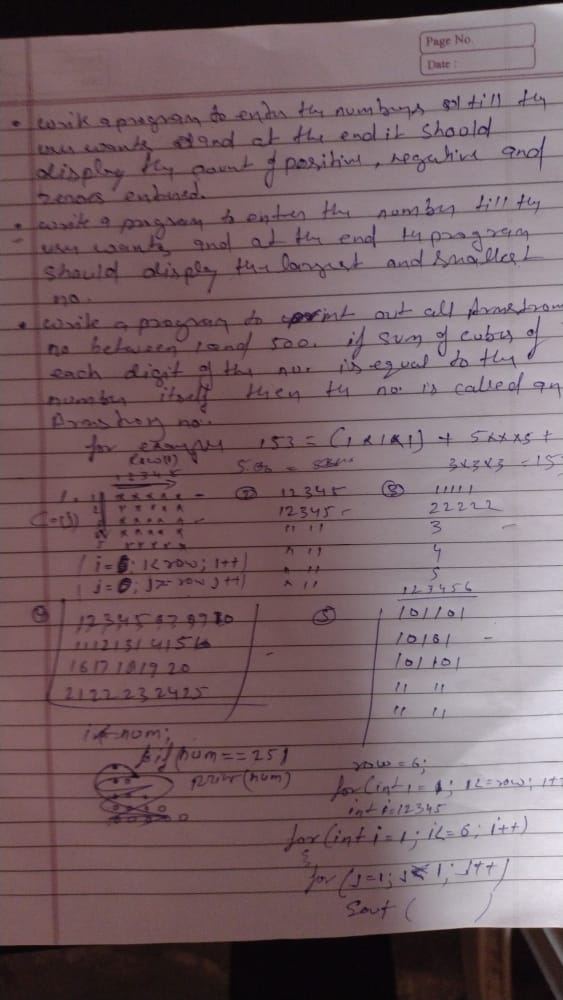 Page No.
Date :
• write a program to enter the numbers till the
user wants and at the end it should
display the count of positive, negative and
zeros entered.
• write a program to enter the number till the
user wants and at the end the program
should display the largest and smallest
no.
• write a program to print out all Armstrong
no between 1 and 500. if sum of cubes of
each digit of the no. is equal to the
number itself then the no is called an
Armstrong no.
for example 153 = (1x1x1) + 5xxx5 +
3x3x3 = 153
row(i)
1 2 3 4 5
1. ② 12345 ③ 11111
* * * * * 12345 22222
* * * * * " " 3
* * * * * " " 4
* * * * * " " 5
(i=0; i<row; i++)
j=0; j>row j++)
123456
④ 12345678910 ⑤ 101101
1112131415 10101
1617181920 101101
2122232425 " "
" "
num;
if(num==25)
(num)
row=6;
for(int i=1; i<=row; i++
int i=12345
for(int i=1; i<=6; i++)
{
for(j=1; j<1; j++)
Sout( )